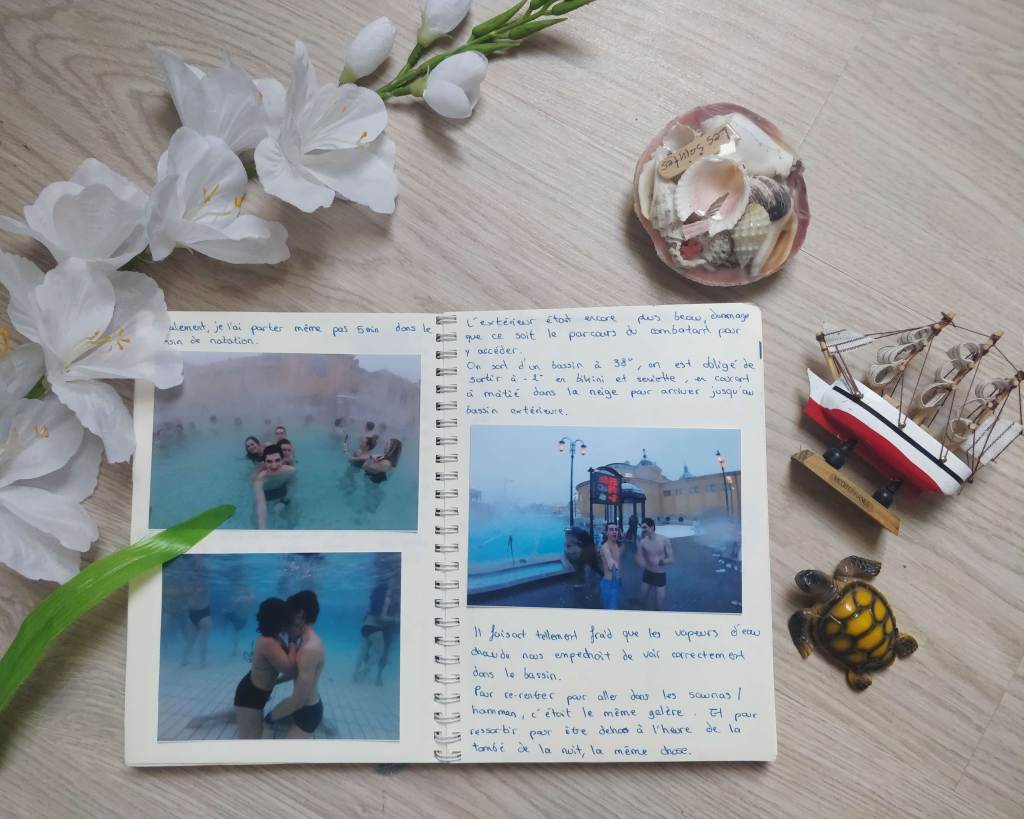 alement, je l'ai parter même pas 5 min dans le
sin de natation.
L'extérieur était encore plus beau, dommage
que ce soit le parcours du combatant pour
y accéder.
On sort d'un bassin à 38°, on est obligé de
sortir à -1° en bikini et serviette, en courant
à moitié dans la neige pour arriver jusqu'au
bassin extérieure.
Il faisait tellement froid que les vapeurs d'eau
chaude nous empechait de voir correctement
dans le bassin.
Pour re-rentrer pour aller dans les saunas/
hamman, c'était le même galère. Et pour
ressortir pour être dehors à l'heure de la
tombé de la nuit, la même chose.
Les Saintes